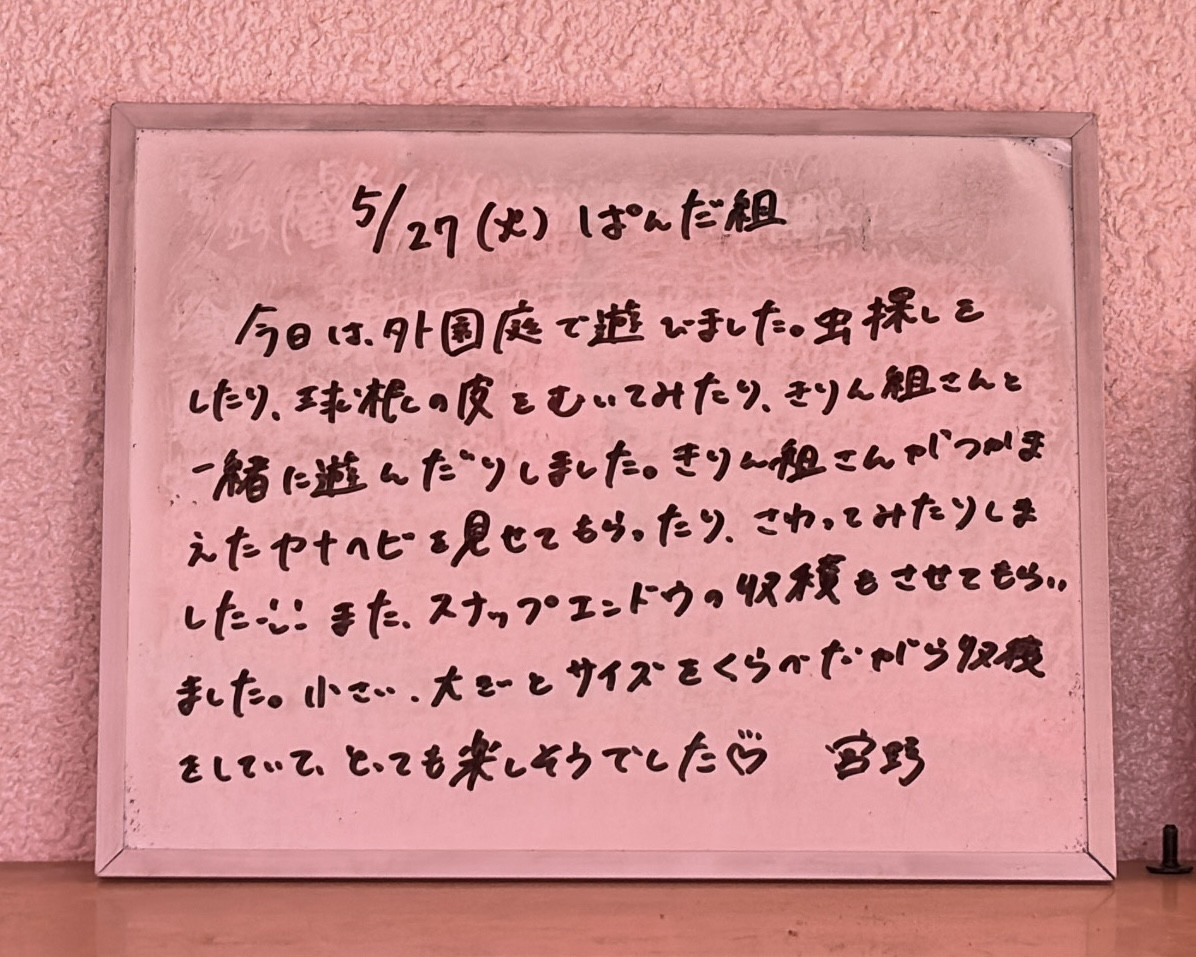 5/27(火) ぱんだ組
今日は、外園庭で遊びました。虫探しを
したり、球根の皮をむいてみたり、きりん組さんと
一緒に遊んだりしました。きりん組さんがつかま
えたヤナヘビを見せてもらったり、さわってみたりしま
した。また、スナップエンドウの収穫もさせてもらい
ました。小さい、大きいとサイズをくらべながら収穫
をしていて、とっても楽しそうでした♡ 宮野